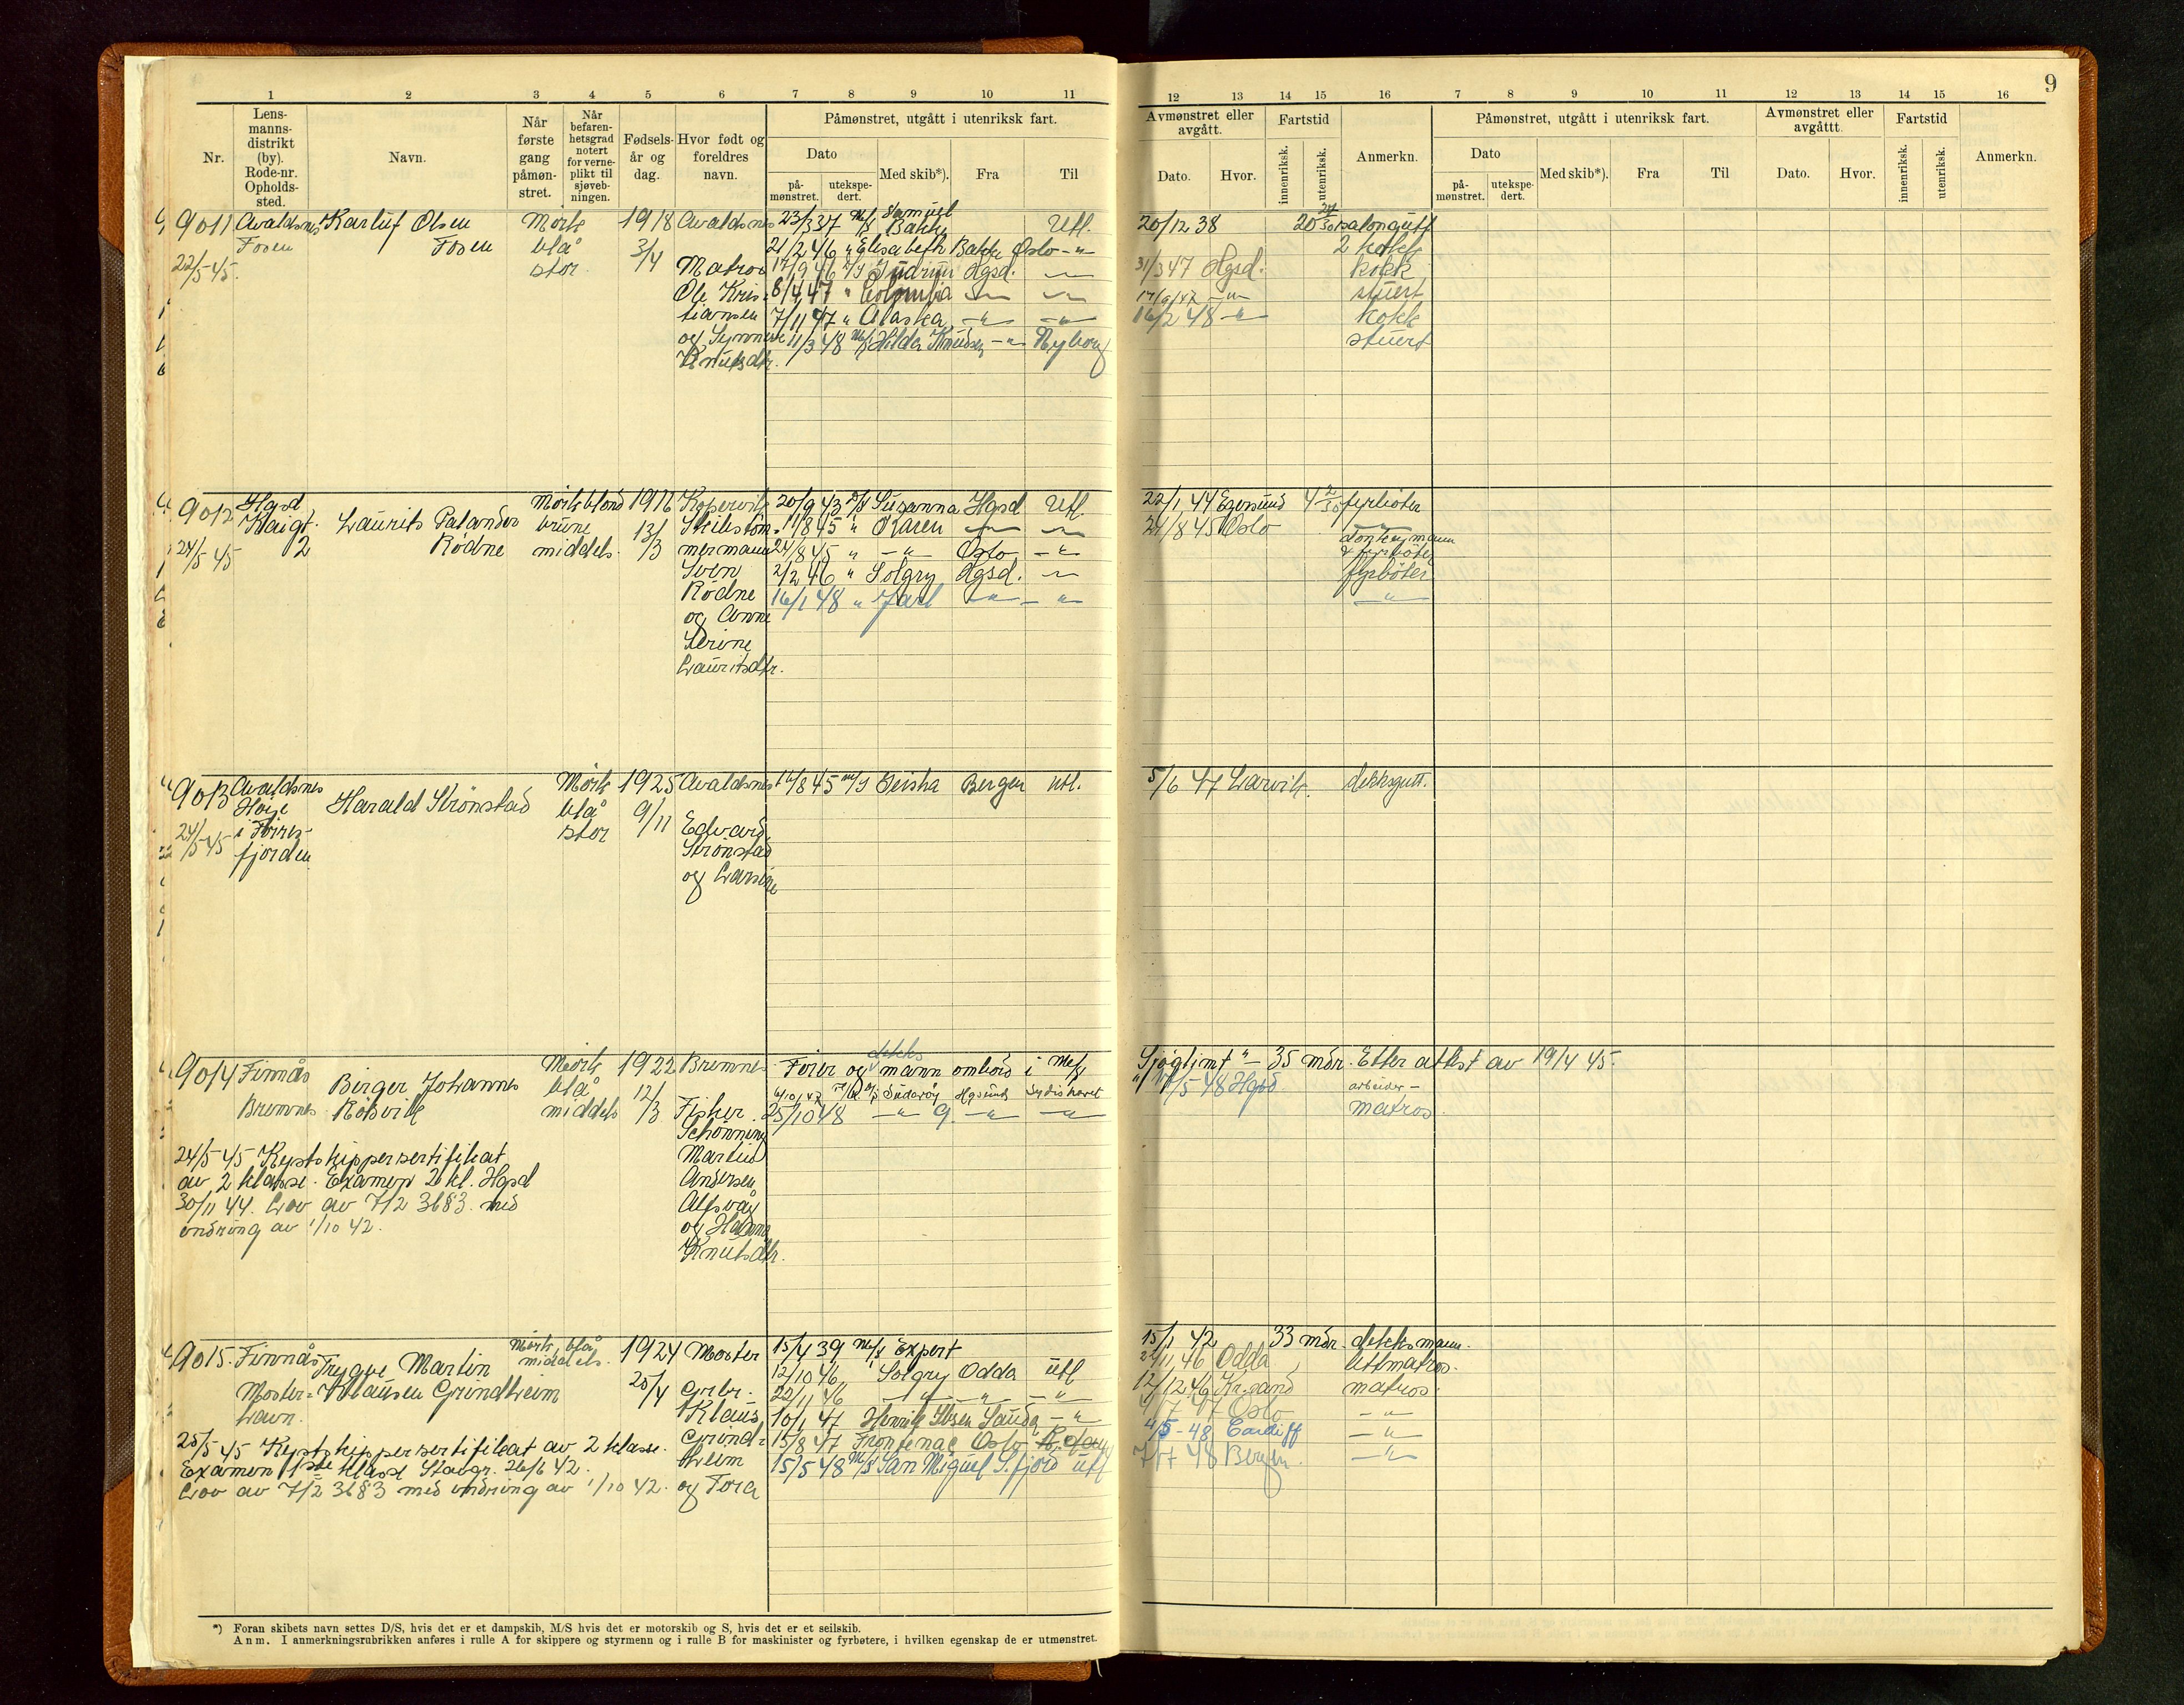 9
1 2 3 4 5 6 7 8 9 10 11
Nr.
Lens-
manns-
distrikt
(by).
Rode-nr.
Opholds-
sted.
Navn.
Når
første
gang
påmøn-
stret.
Når
befaren-
hetsgrad
notert
for verne-
plikt til
sjøveb-
ningen.
Fødsels-
år og
dag.
Hvor født og
foreldres
navn.
Påmønstret, utgått i utenriksk fart.
Dato
på-
mønstret.
utekspe-
dert.
Med skib*).
Fra
Til
12 13 14 15 16 7 8 9 10 11 12 13 14 15 16
Avmønstret eller
avgått.
Dato.
Hvor.
Fartstid
innenriksk.
utenriksk.
Anmerkn.
Påmønstret, utgått i utenriksk fart.
Dato
på-
mønstret.
utekspe-
dert.
Med skib*).
Fra
Til
Avmønstret eller
avgåttt.
Dato.
Hvor.
Fartstid
innenriksk.
utenriksk.
Anmerkn.
9011 Avaldsnes Karluf Olsen Mörk 1918 Avaldsnes 23/3 37 M/S Samuel Bakke Utl.
Fosen Fosen blå 3/4 21/2 46 " Elisabeth Bakke Oslo - " -
22/5-45. stor Matros 17/9 46 Hgsd. - " -
Ole Kris- 8/4 47 " Colombia - " - - " -
tiansen 7/11 47 " Alaska - " - - " -
og 11/3 48 M/S Hilda Knudsen - " - Nyborg
Knutsdtr.
20/12 38 salongutt
2 kokk
31/3 47 Hgsd. kokk
17/9 47 - " - stuert
16/2 48 - " - kokk
stuert
9012 Hgsd Laurits Palander Mörk blond 1916 Kopervik 20/9 43 D/S Susanna Hgsd Utl.
Haugt. Rödne brune 13/3 Skibstöm- 11/8 45 " Karen - " - - " -
24/5 45 2 middels. mermann 24/8 45 " - " - Oslo - " -
Sven 2/2 46 " Solgry Hgsd. - " -
Rödne 16/1 48 " Jarl - " - - " -
og Anne
Serine
Lauritsdtr.
22/1 44 Egersund fyrböter
21/8 45 Oslo - " -
donkeymann
& fyrböter
fyrböter
- " -
9013 Avaldsnes Harald Strönstad Mörk 1925 Avaldsnes 14/8 45 M/S Geisha Bergen utl.
Höie blå 9/11 Edvard
24/5-45 i Förres- stor Strönstad
fjorden og
5/6 47 Larvik. dekksgutt.
9014 Finnås Birger Johannes Mörk 1922 Bremnes Förer og dekksmann ombord i M/K
Bremnes Rösvik blå 12/3 Fisker 4/10 47 Suderöy Hgsund Sydishavet
middels 25/10 48 - " - 9. - " - - " -
Schönning
24/5-45 Kystskippersertifikat Martin
av 2 klasse. Examen 2 kl. Hgsd Andersen
30/11 44. Lov av 7/2 36 §3. med Alfsvåg
endring av 1/10 42. og Hanna
Knutsdtr.
Sjöglimt "- 35 mdr. Etter attest av 19/4 45.
/5 48 Hgsd arbeider -
matros.
9015. Finnås Trygve Martin Mörk, blå 1924 Moster 15/4 39 M/S Expert
middels.
Moster- Klausen Grindheim 25/4 Grbr. 12/10 46 " Solgry Odda utl
havn. Klaus 22/11 46 - " - - " - - " -
10/1 47 Henrik Ibsen Sauda - " -
25/5 45 Kystskippersertifikat av 2 klasse. Grind- 15/8 47 Frontenac Oslo
Examen 1ste klasse Stavgr. 26/6 42. heim 15/5 48 M/S San Miguel S.fjord utl
Lov av 7/2 36 §3 med endring av 1/10 42. og Tora
15/1 42 33 mdr. dekksmann.
22/11 46 Odda lettmatros.
12/12 46 Kr.sand matros.
/7 47 Oslo - " -
4/5 - 48 Cardiff - " -
7/7 48 Bergen. - " -
*) Foran skibets navn settes D/S, hvis det er et dampskib, M/S hvis det er motorskib og S, hvis det er et seilskib.
Anm. I anmerkningsrubrikken anføres i rulle A for skippere og styrmenn og i rulle B for maskinister og fyrbøtere, i hvilken egenskap de er utmønstret.